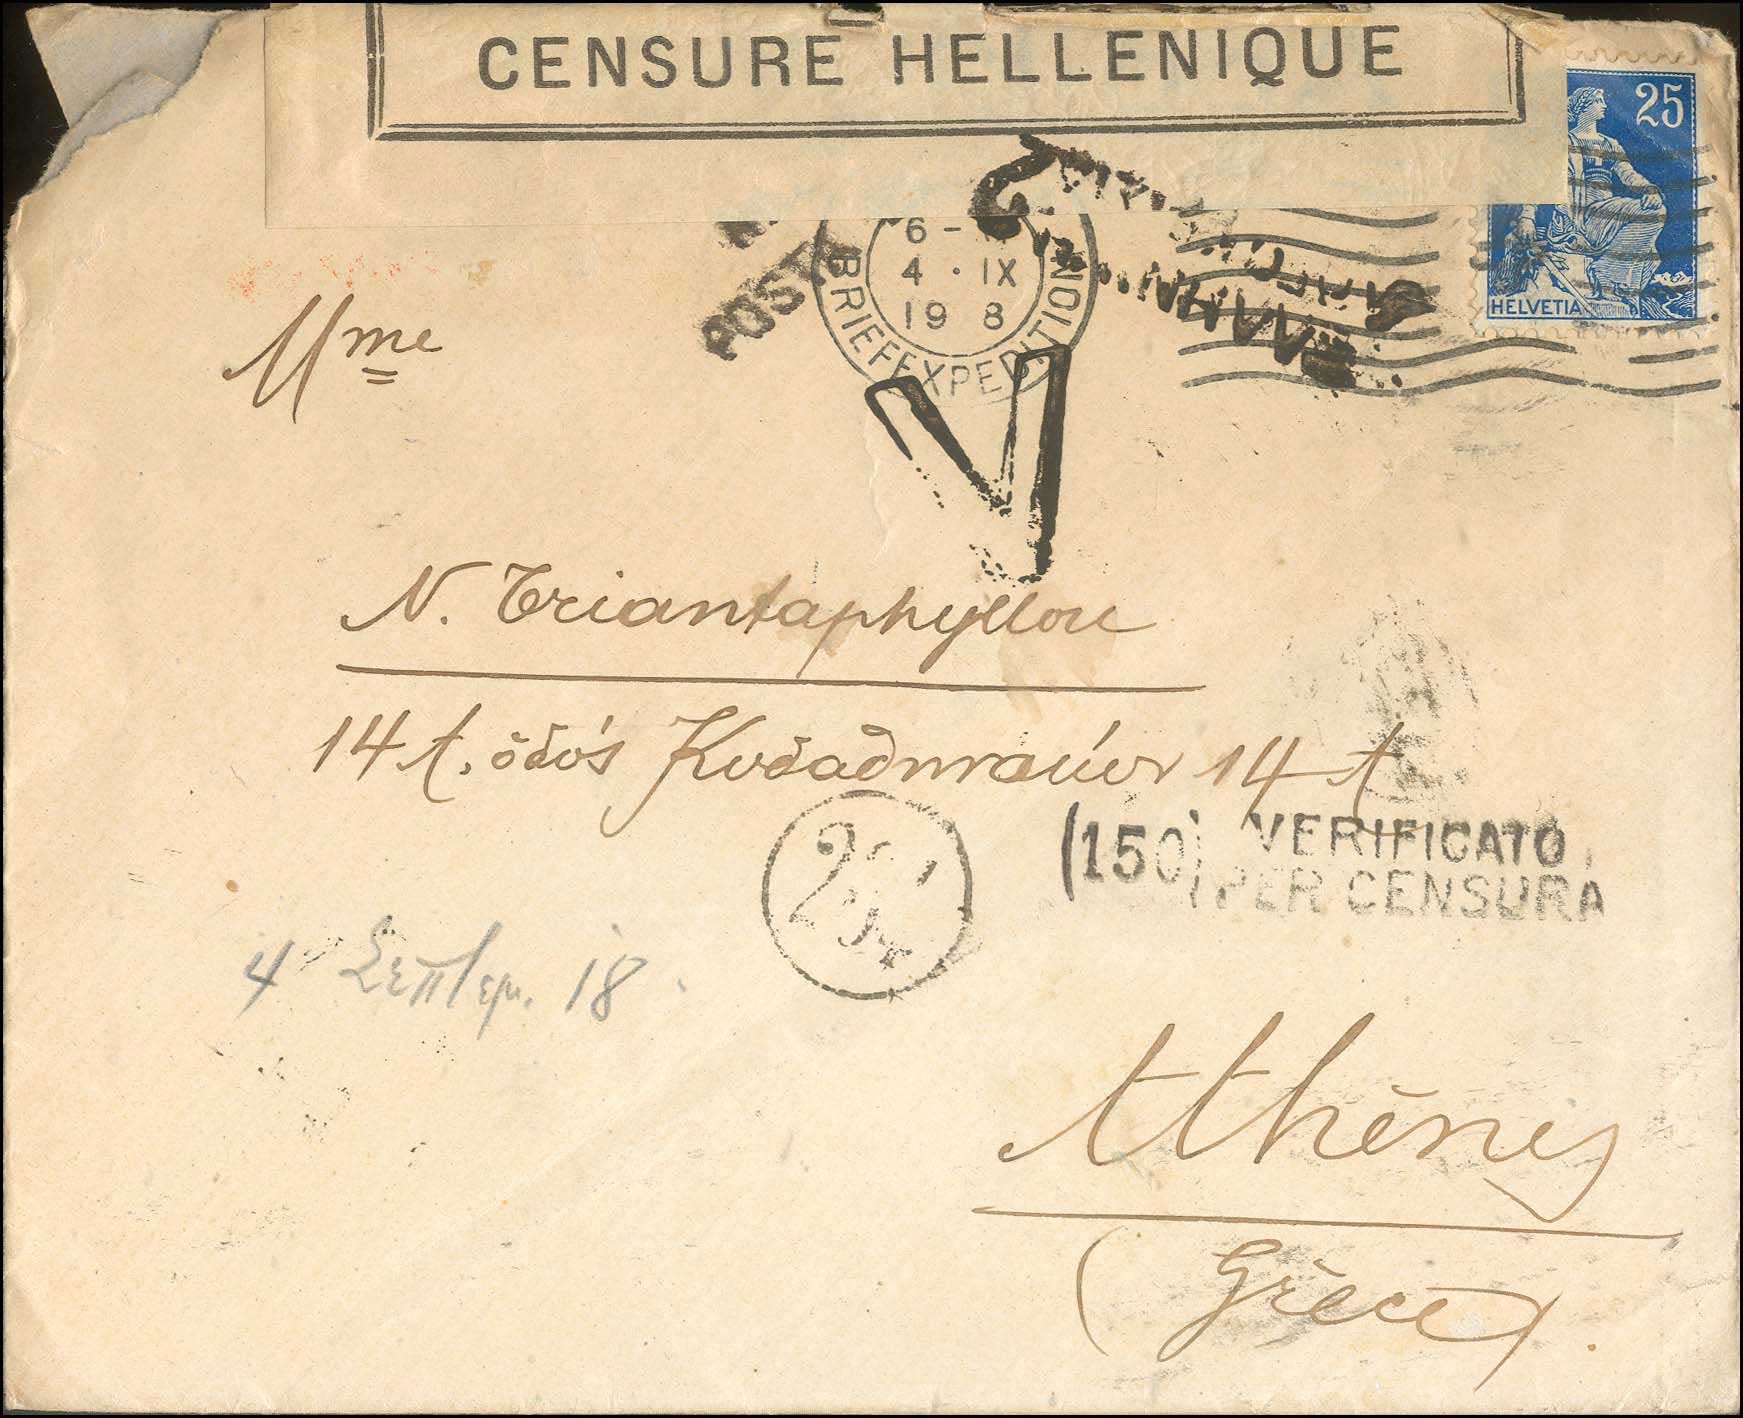 CENSURE HELLENIQUE
25
HELVETIA
6 -
4 · IX
19 8
BRIEFEXPEDITION
POST
Mme
N. Triantaphyllou
14 A. ὁδός Κυδαθηναίων 14 A
(150) VERIFICATO
PER CENSURA
4 Σεπτεμ. 18
Athènes
(Grèce).